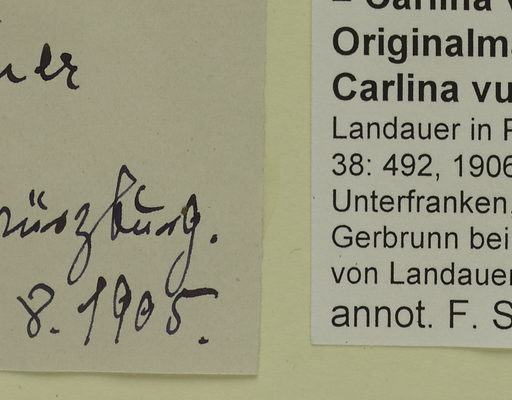 ürzburg.
8. 1905.
= Carlina v
Originalma
Carlina vu
Landauer in F
38: 492, 1906
Unterfranken,
Gerbrunn bei
von Landauer
annot. F. S